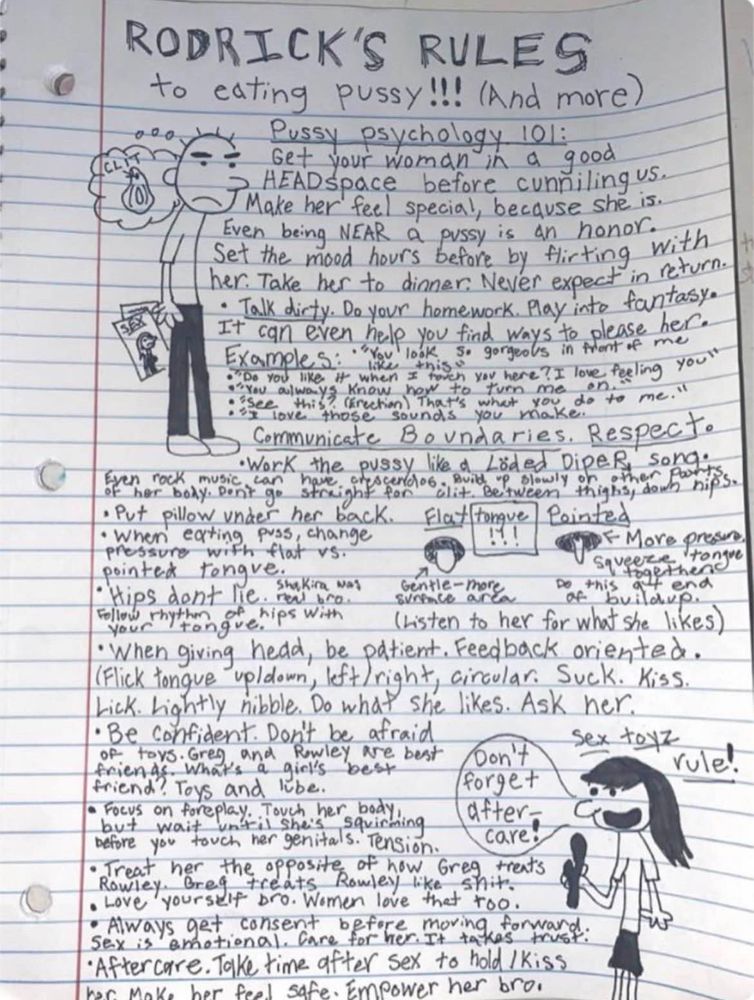 RODRICK'S RULES
to eating pussy!!! (And more)
Pussy psychology 101:
Get your woman in a good
HEADspace before cunnilingus.
Make her feel special, because she is.
Even being NEAR a pussy is an honor.
Set the mood hours before by flirting with
her. Take her to dinner. Never expect in return.
CLIT
SEX
• Talk dirty. Do your homework. Play into fantasy.
It can even help you find ways to please her.
Examples: • "You look so gorgeous in front of me
like this"
• "Do you like it when I touch you here? I love feeling you"
• "You always know how to turn me on."
• "See this? (Erection) That's what you do to me."
• "I love those sounds you make.
Communicate Boundaries. Respect.
• Work the pussy like a Löded Diper song.
Even rock music can have crescendos. Build up slowly on other parts
of her body. Don't go straight for clit. Between thighs, down hips.
• Put pillow under her back.
• When eating puss, change
pressure with flat vs.
pointed tongue.
Flat tongue Pointed
!!!
Gentle-more
surface area
← More pressure.
squeeze tongue
together
Do this at end
of buildup.
• Hips dont lie. Shakira was
real bro.
Follow rhythm of hips with
your tongue.
(Listen to her for what she likes)
• When giving head, be patient. Feedback oriented.
(Flick tongue up/down, left/right, circular. Suck. Kiss.
Lick. Lightly nibble. Do what she likes. Ask her.
• Be confident. Don't be afraid
of toys. Greg and Rowley are best
friends. What's a girl's best
friend? Toys and lube.
sex toyz
rule!
Don't
forget
after-
care!
• Focus on foreplay. Touch her body,
but wait until she's squirming
before you touch her genitals. Tension.
• Treat her the opposite of how Greg treats
Rowley. Greg treats Rowley like shit.
• Love yourself bro. Women love that too.
• Always get consent before moving forward.
Sex is emotional. Care for her. It takes trust.
• Aftercare. Take time after sex to hold/kiss
her. Make her feel safe. Empower her bro.